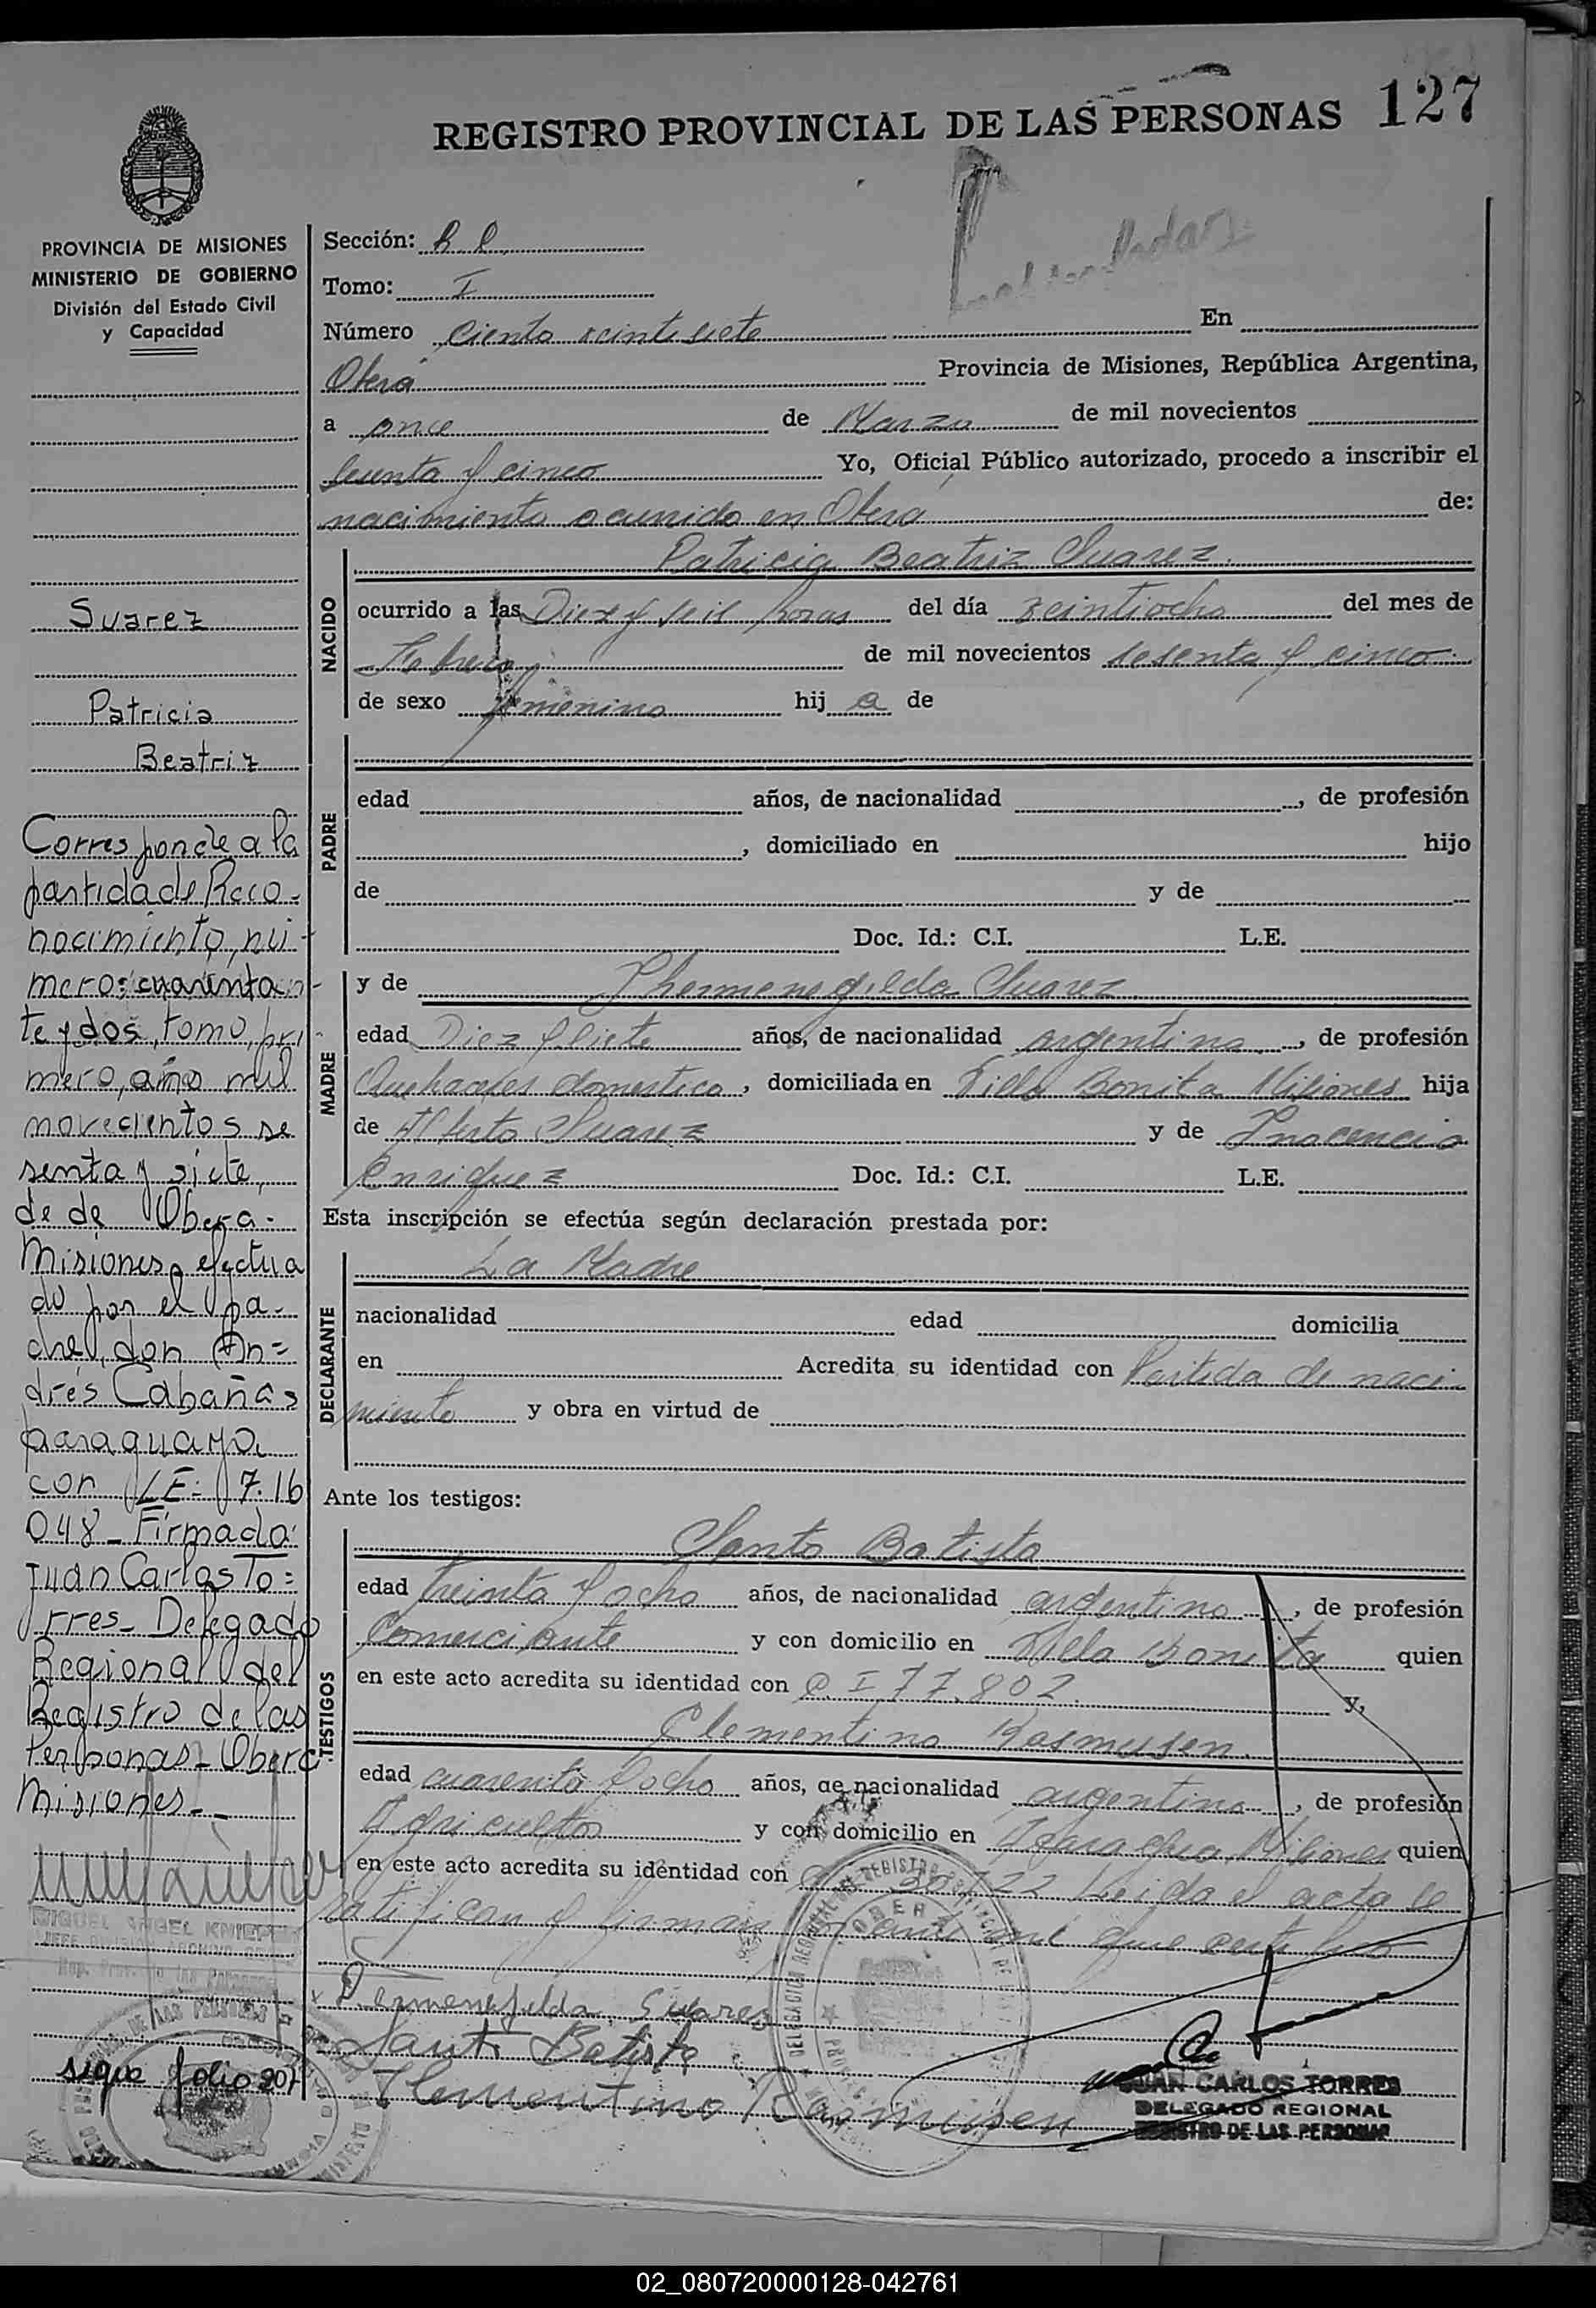 REGISTRO PROVINCIAL DE LAS PERSONAS 127
PROVINCIA DE MISIONES
MINISTERIO DE GOBIERNO
División del Estado Civil
y Capacidad
Suarez
Patricia
Beatriz
Corresponde a la
partida de Reco-
nocimiento, nú-
mero: cuarenta
y dos, tomo, pri
mero, año mil
novecientos se
senta y siete,
de de Obera-
Misiones efectua
do por el pa-
dre, don An=
drés Cabañas
paraguayo
con LE: 7.16
048_ Firmado
Juan Carlos To=
rres_ Delegado
Regional del
Registro de las
Personas_ Obera
Misiones._
MIGUEL ANGEL KNIEP
sigue folio 207
Sección:
Tomo: I
Número Ciento veintisiete En
Oberá Provincia de Misiones, República Argentina,
a once de Marzo de mil novecientos
sesenta y cinco Yo, Oficial Público autorizado, procedo a inscribir el
nacimiento ocurrido en Oberá de:
NACIDO
Patricia Beatriz Suarez.
ocurrido a las Diez y seis horas del día veintiocho del mes de
Febrero de mil novecientos sesenta y cinco
de sexo femenino hij a de
PADRE
edad años, de nacionalidad , de profesión
, domiciliado en hijo
de y de
Doc. Id.: C.I. L.E.
MADRE
y de Hermenegilda Suarez
edad Diez y siete años, de nacionalidad argentina , de profesión
Quehaceres domestico , domiciliada en Villa Bonita Misiones hija
de Alberto Suarez y de Inocencia
Enriquez Doc. Id.: C.I. L.E.
Esta inscripción se efectúa según declaración prestada por:
DECLARANTE
La Madre
nacionalidad edad domicilia
en Acredita su identidad con Partida de naci
miento y obra en virtud de
Ante los testigos:
TESTIGOS
Santo Batista
edad treinta y ocho años, de nacionalidad argentino , de profesión
Comerciante y con domicilio en Villa Bonita quien
en este acto acredita su identidad con C I 77.802. y,
Clementino Rasmusen.
edad cuarenta y ocho años, de nacionalidad argentino , de profesión
Agricultor y con domicilio en Misiones quien
en este acto acredita su identidad con Leida el acta la
ratifican y firman ante mi que certifico
Hermenegilda Suares
Santo Batista
Clementino Rasmusen
JUAN CARLOS TORRES
DELEGADO REGIONAL
REGISTRO DE LAS PERSONAS
02_080720000128-042761